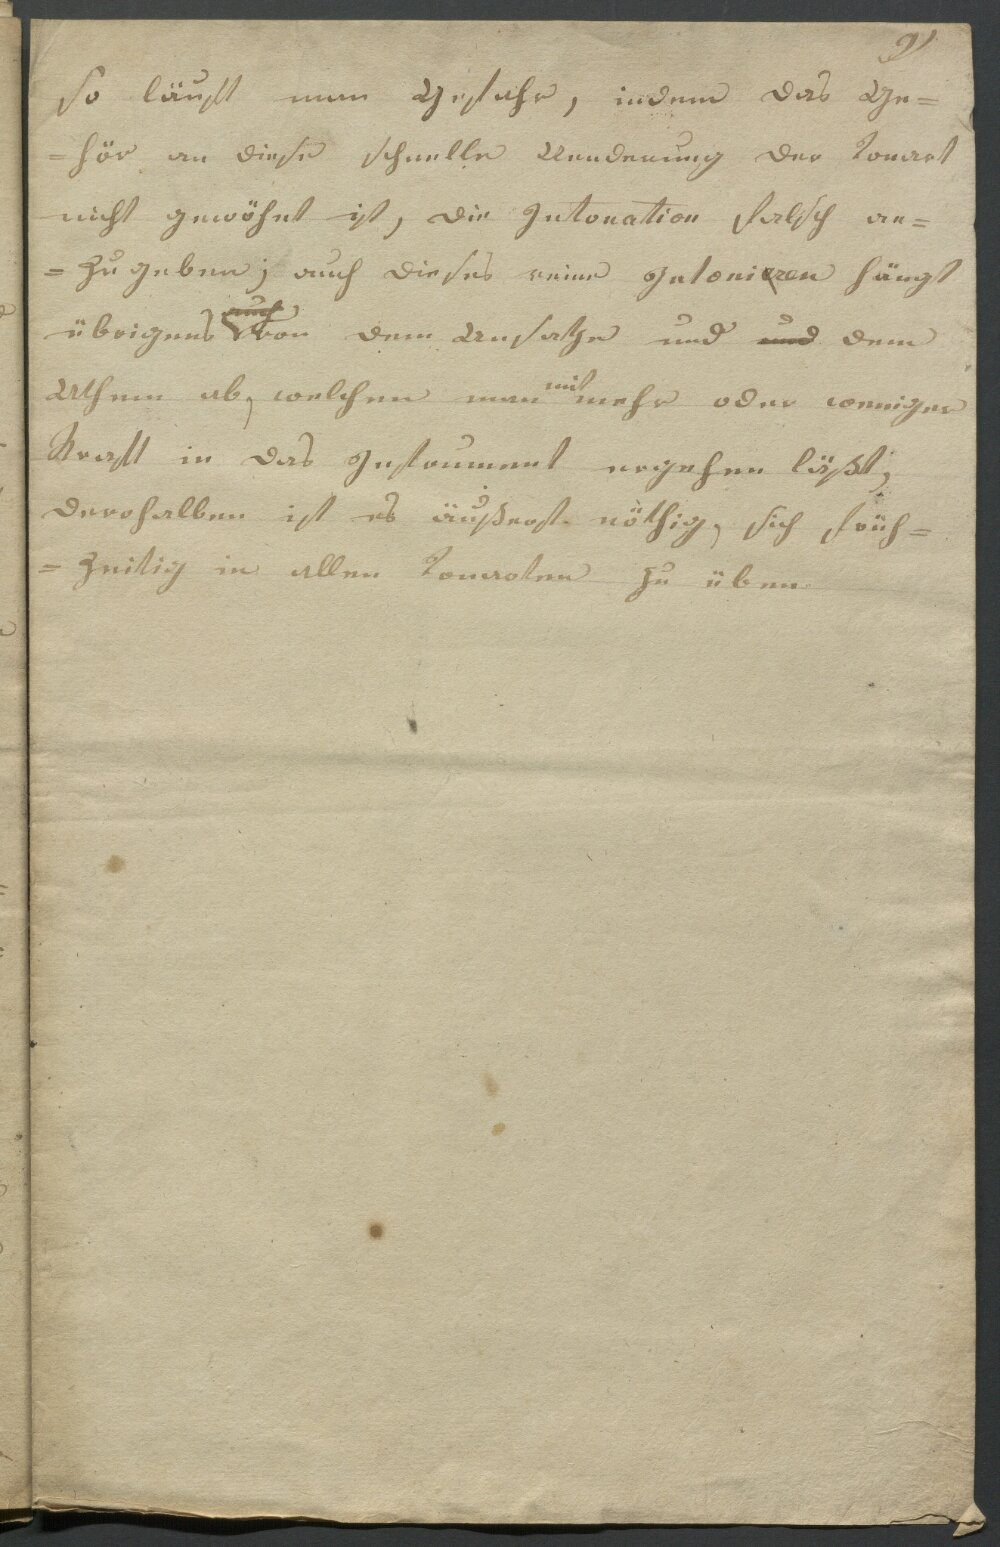 91
so läuft man Gefahr, indem das Ge=
=hör an diese schnelle Aenderung der Tonart
nicht gewöhnt ist, die Intonation falsch an=
=zugeben; auch dieses reine Intoniren hängt
auch
übrigens von dem Ansatze und und dem
mit
Athem ab, welchen man mehr oder weniger
Kraft in das Instrument ergehen läßt,
derohalben ist es äußerst nöthig, sich früh=
=zeitig in allen Tonarten zu üben